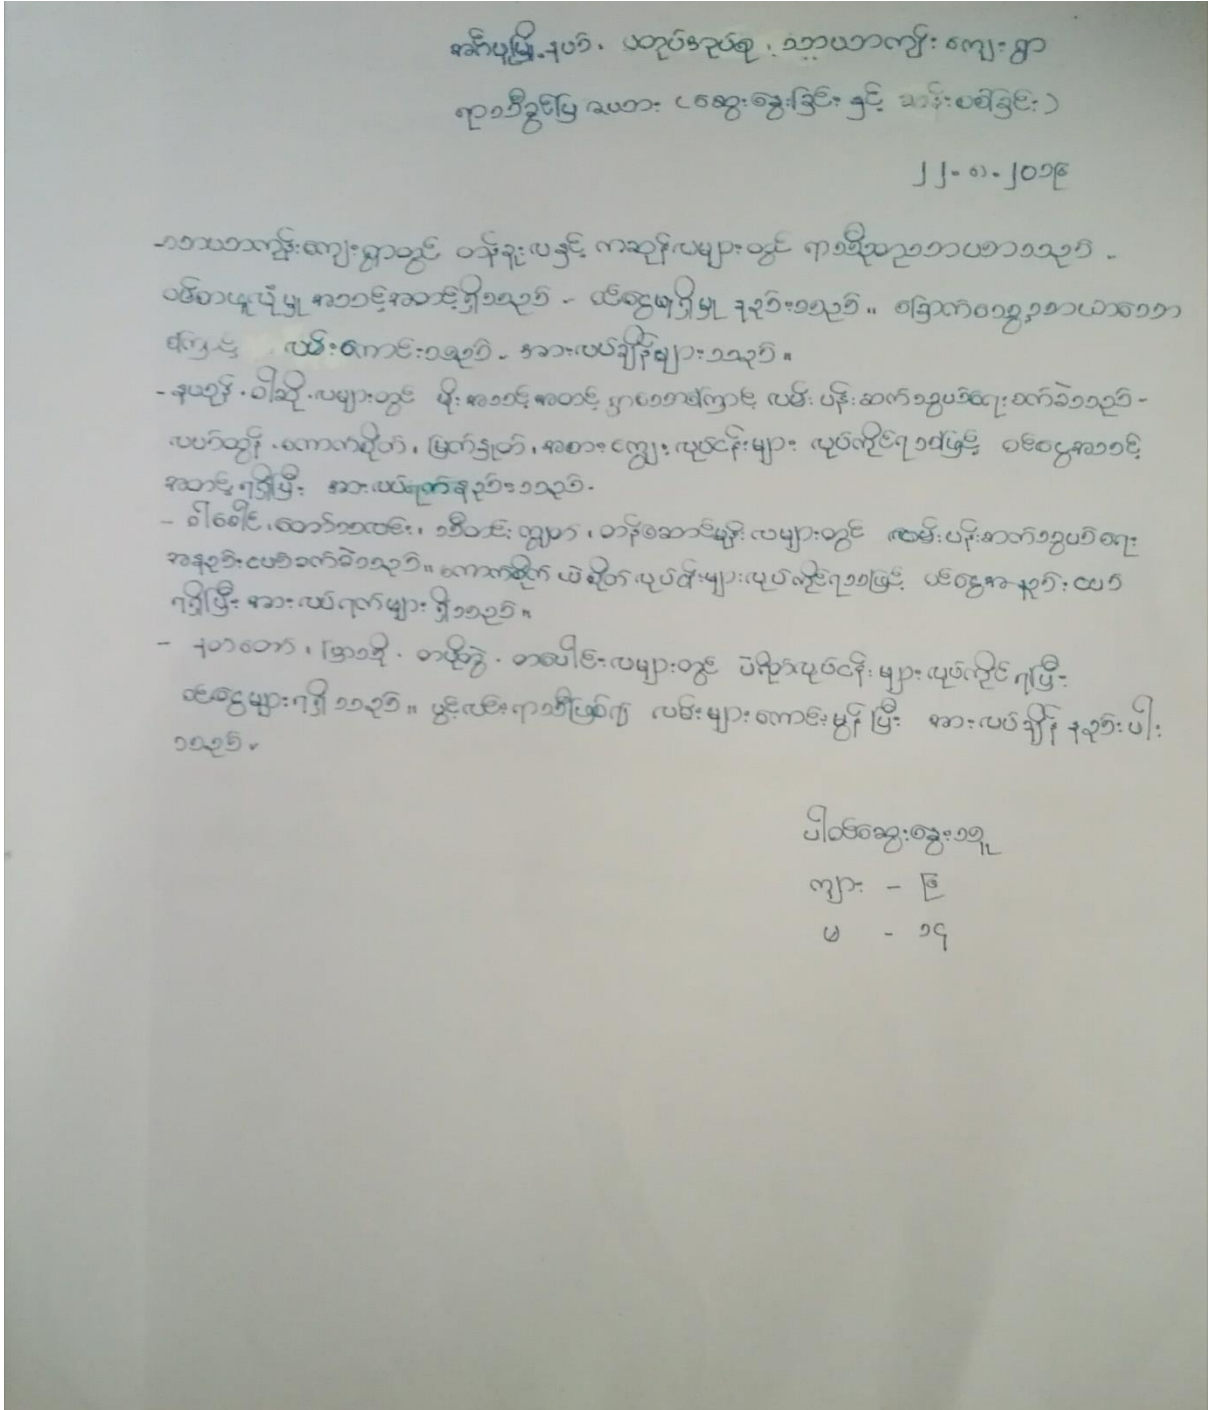 အင်္ဂပူမြို့နယ်၊ ပတုပ်အုပ်စု၊ သာယာကုန်း ကျေးရွာ
ရာသီခွင်ပြ ဇယား (ဆွေးနွေးခြင်း နှင့် ဆန်းစစ်ခြင်း)
၂၂-၈-၂၀၁၉
-သာယာကုန်းကျေးရွာတွင် တန်ခူးလနှင့် ကဆုန်လများတွင် ရာသီဥတုသာယာသည်-
ဝမ်စာယူလုံမှု အသင့်အတင့်ရှိသည်- ဝင်ငွေရရှိမှု နည်းသည်။ ခြောက်သွေ့သာယာသော
ကြောင့် လမ်းကောင်းသည်- အားလပ်ချိန်များသည်။
- နယုန်၊ ဝါဆို လများတွင် မိုးအသင့်အတင့် ရွာသောကြောင့် လမ်းပန်းဆက်သွယ်ရေးခက်ခဲသည်-
လယ်ထွန်၊ ကောက်စိုက်၊ မြက်နှုတ်၊ အစားကျွေး လုပ်ငန်းများ လုပ်ကိုင်ရသဖြင့် ဝင်ငွေအသင့်
အတင့်ရရှိပြီး အားလပ်ရက်နည်းသည်-
- ဝါခေါင်၊ တော်သလင်း၊ သီတင်းကျွတ်၊ တန်ဆောင်မုန်း လများတွင် လမ်းပန်းဆက်သွယ်ရေး
အနည်းငယ်ခက်ခဲသည်။ ကောက်စိုက် ပဲစိုက် လုပ်ငန်းများလုပ်ကိုင်ရသဖြင့် ဝင်ငွေအနည်းငယ်
ရရှိပြီး အားလပ်ရက်များ ရှိသည်။
- နတ်တော်၊ ပြာသို၊ တပို့တွဲ၊ တပေါင်းလများတွင် ပဲစိုက်လုပ်ငန်းများ လုပ်ကိုင်ရပြီး
ဝင်ငွေများရရှိသည်။ ပွင့်လင်းရာသီဖြစ်၍ လမ်းများကောင်းမွန်ပြီး အားလပ်ချိန် နည်းပါး
သည်-
ပါဝင်ဆွေးနွေးသူ
ကျား - ၆
မ - ၁၄